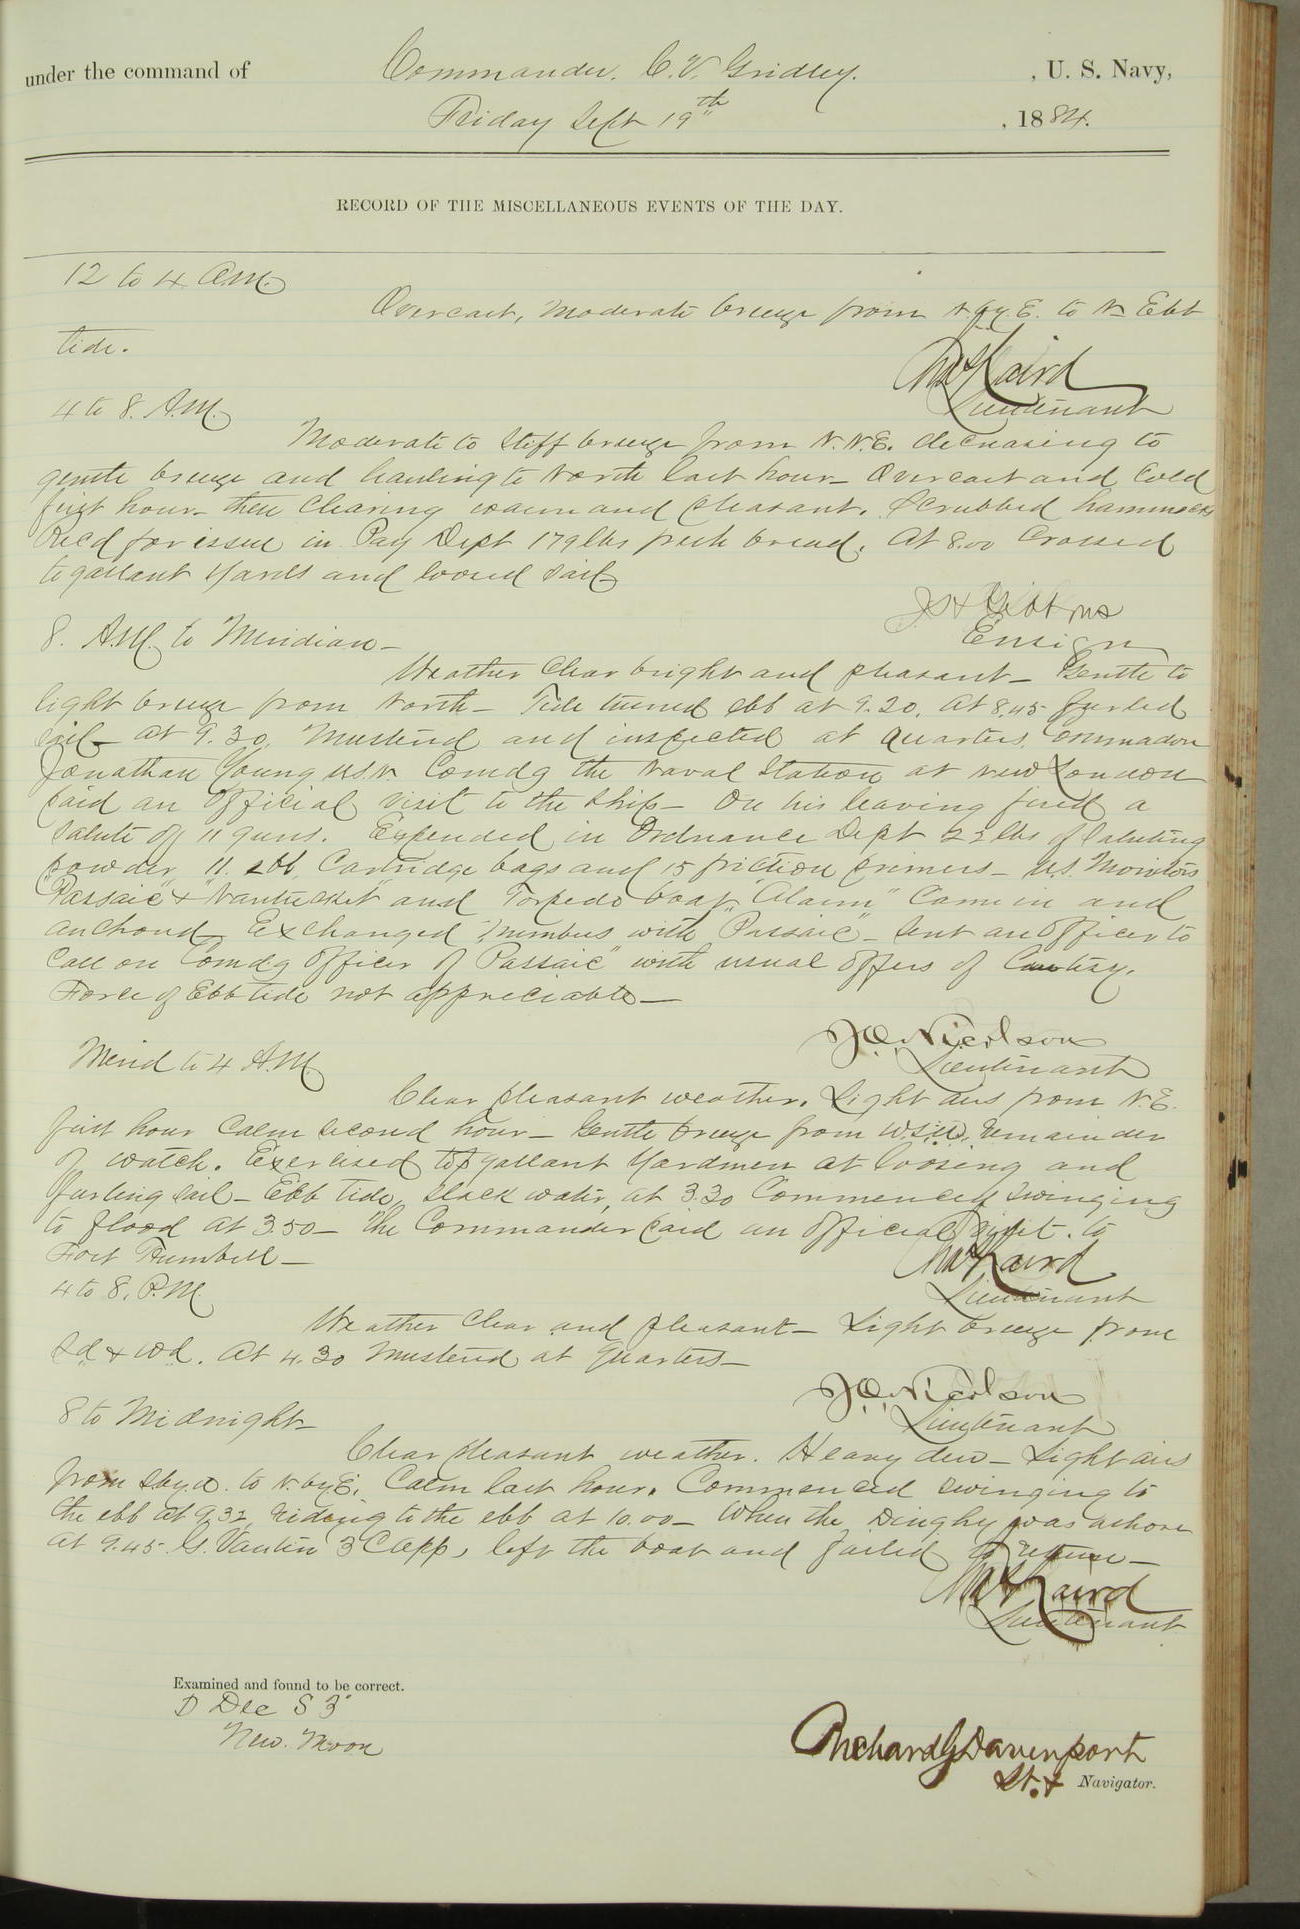 under the command of Commander. C. V. Gridley. , U. S. Navy,
Friday Sept 19th , 1884.
RECORD OF THE MISCELLANEOUS EVENTS OF THE DAY.
12 to 4 A.M.
Overcast, moderate breeze from N. by E. to N Ebb
tide.
Chas Laird
Lieutenant
4 to 8. A.M.
Moderate to stiff breeze from N.N.E. decreasing to
gentle breeze and hauling to North last hour_ Overcast and cold
first hour_ then clearing warm and pleasant. Scrubbed hammocks
Recd for issue in Pay Dept 179 lbs fresh bread. At 8.00 crossed
to gallant yards and loosed sail
Ensign
8. A.M. to Meridian_
Weather clear bright and pleasant_ Gentle to
light breeze from North_ Tide turned ebb at 9.20. At 8.45 furled
sail_ At 9.30, mustered and inspected at quarters. Commodore
Jonathan Young U.S.N Comdg the Naval Station at New London
paid an official visit to the ship_ On his leaving fired a
salute of 11 guns. Expended in Ordnance Dept 22 lbs of saluting
powder, 11. 2 lb, Cartridge bags and 15 friction primers_ U.S. Monitors
"Passaic" & "Nantucket" and Torpedo boat "Alarm" Came in and
anchored_ Exchanged numbers with "Passaic"_ Sent an officer to
call on Comdg Officer of "Passaic" with usual offers of Courtesy.
Force of Ebb tide not appreciable_
J.O. Nicolson
Lieutenant
Merid to 4 A.M.
Clear pleasant weather. Light airs from N.E.
first hour Calm second hour_ Gentle breeze from W.S.W. remainder
of watch. Exercised top gallant yardmen at loosing and
furling sail_ Ebb tide, slack water, at 3.30 Commenced swinging
to flood at 3.50_ The Commander paid an official visit. to
Fort Trumbull_
Chas Laird
Lieutenant
4 to 8. P.M.
Weather clear and pleasant_ Light breeze from
Sd & Wd. At 4.30 mustered at quarters_
J.O. Nicolson
Lieutenant
8 to Midnight_
Clear pleasant weather. Heavy dew_ Light airs
from S by W. to N. by E. Calm last hour. Commenced swinging to
the ebb at 9.32 riding to the ebb at 10.00_ When the Dinghy was ashore
at 9.45 G. Vantin 3 C app, left the boat and failed to return_
Chas Laird
Lieutenant
Examined and found to be correct.
D Dec S 3"
New. Moon
Richard G Davenport
Lt. & Navigator.